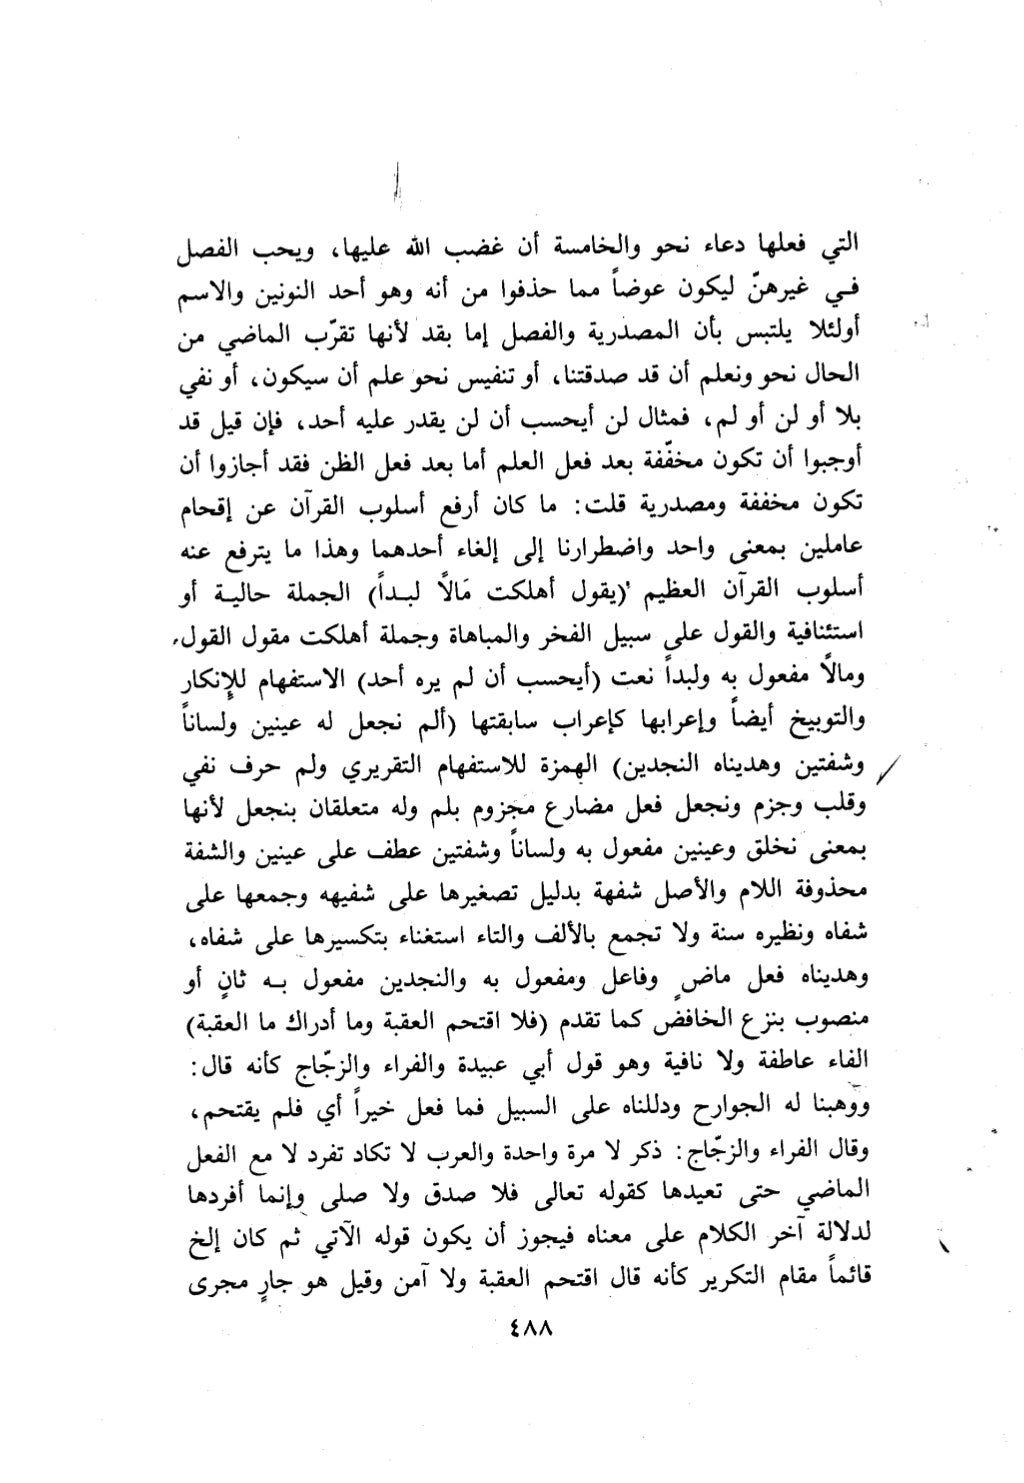 التي فعلها دعاء نحو والخامسة أن غضب الله عليها، ويحب الفصل
في غيرهنّ ليكون عوضاً مما حذفوا من أنه وهو أحد النونين والاسم
أولئلا يلتبس بأن المصدرية والفصل إما بقد لأنها تقرّب الماضي من
الحال نحو ونعلم أن قد صدقتنا، أو تنفيس نحو علم أن سيكون، أو نفي
بلا أو لن أو لم، فمثال لن أيحسب أن لن يقدر عليه أحد، فإن قيل قد
أوجبوا أن تكون مخفّفة بعد فعل العلم أما بعد فعل الظن فقد أجازوا أن
تكون مخففة ومصدرية قلت: ما كان أرفع أسلوب القرآن عن إقحام
عاملين بمعنى واحد واضطرارنا إلى إلغاء أحدهما وهذا ما يترفع عنه
أسلوب القرآن العظيم (يقول أهلكت مَالاً لبداً) الجملة حالية أو
استئنافية والقول على سبيل الفخر والمباهاة وجملة أهلكت مقول القول،
ومالاً مفعول به ولبداً نعت (أيحسب أن لم يره أحد) الاستفهام للإنكار
والتوبيخ أيضاً وإعرابها كإعراب سابقتها (ألم نجعل له عينين ولساناً
وشفتين وهديناه النجدين) الهمزة للاستفهام التقريري ولم حرف نفي
وقلب وجزم ونجعل فعل مضارع مجزوم بلم وله متعلقان بنجعل لأنها
بمعنى نخلق وعينين مفعول به ولساناً وشفتين عطف على عينين والشفة
محذوفة اللام والأصل شفهة بدليل تصغيرها على شفيهه وجمعها على
شفاه ونظيره سنة ولا تجمع بالألف والتاء استغناء بتكسيرها على شفاه،
وهديناه فعل ماضٍ وفاعل ومفعول به والنجدين مفعول به ثانٍ أو
منصوب بنزع الخافض كما تقدم (فلا اقتحم العقبة وما أدراك ما العقبة)
الفاء عاطفة ولا نافية وهو قول أبي عبيدة والفراء والزجّاج كأنه قال:
ووهبنا له الجوارح ودللناه على السبيل فما فعل خيراً أي فلم يقتحم،
وقال الفراء والزجّاج: ذكر لا مرة واحدة والعرب لا تكاد تفرد لا مع الفعل
الماضي حتى تعيدها كقوله تعالى فلا صدق ولا صلى وإنما أفردها
لدلالة آخر الكلام على معناه فيجوز أن يكون قوله الآتي ثم كان إلخ
قائماً مقام التكرير كأنه قال اقتحم العقبة ولا آمن وقيل هو جارٍ مجرى
٤٨٨